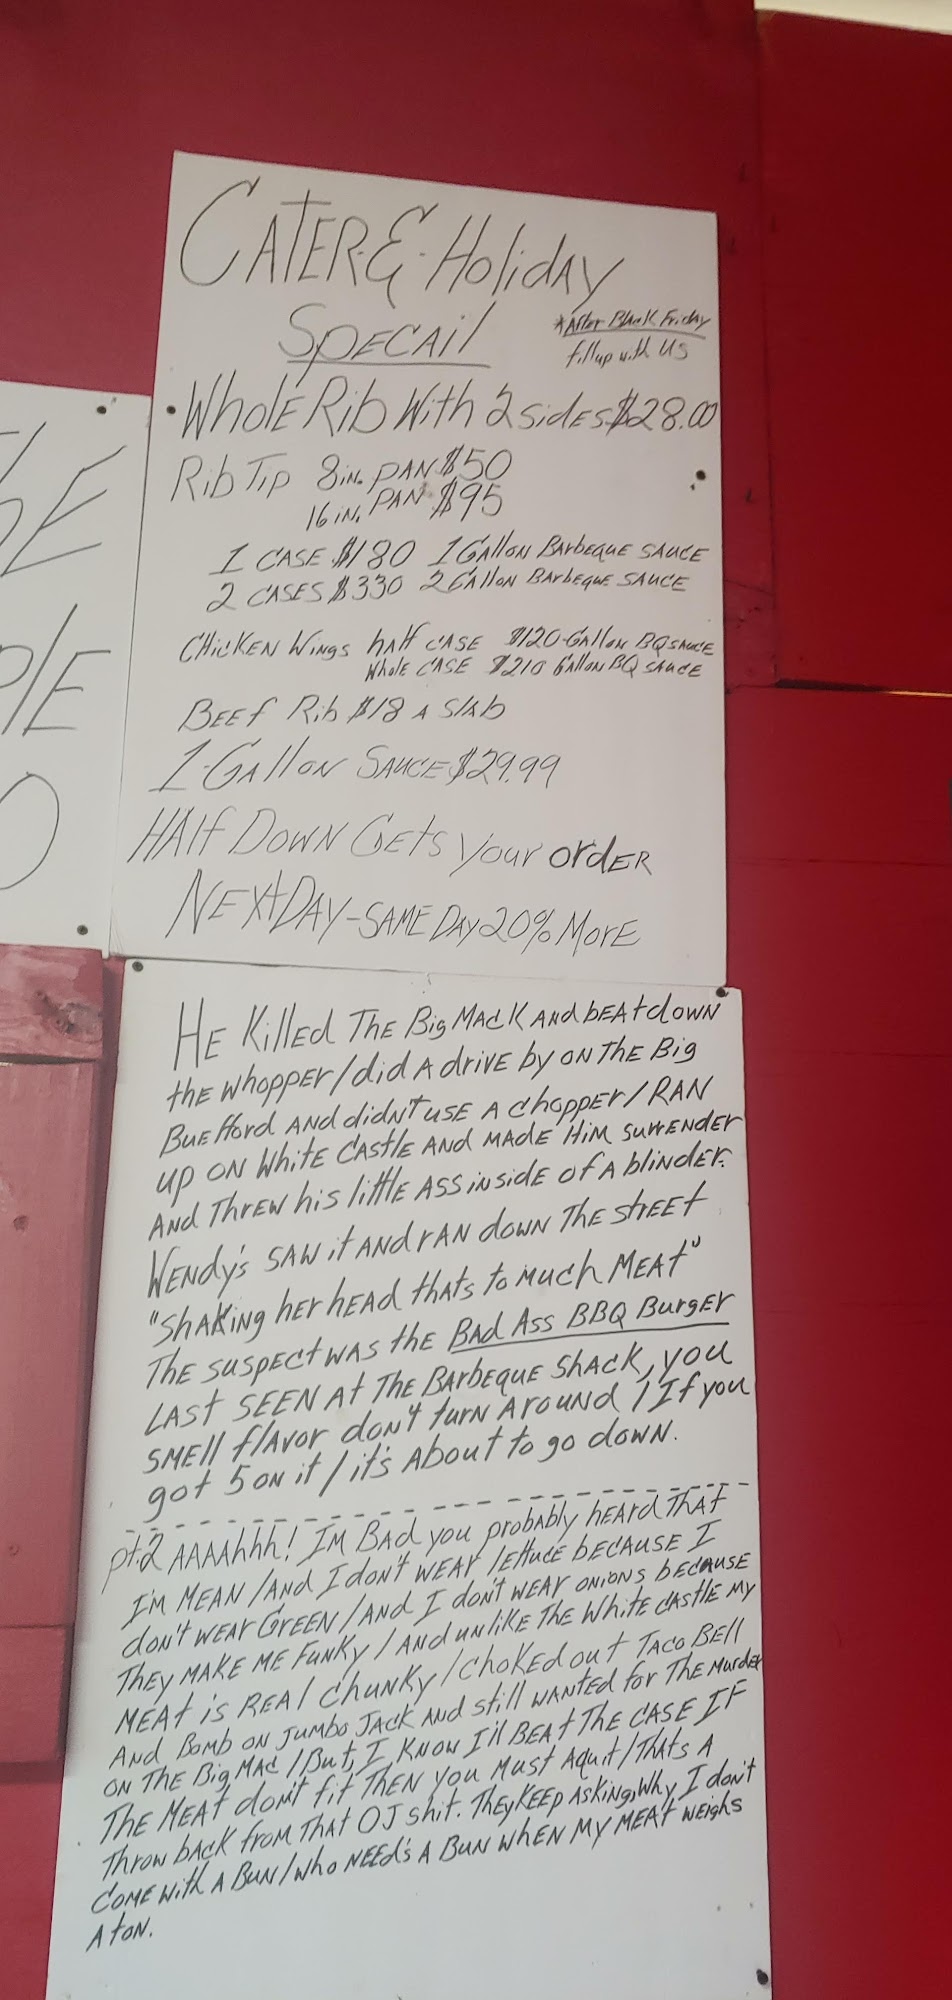 CATER-&-Holiday
SPECAIl
*After Black Friday
fillup with US
Whole Rib With 2 sides $28.00
Rib Tip 8in. PAN $50
16 in. PAN $95
1 CASE $180 1 Gallon Barbeque SAUCE
2 CASES $330 2 Gallon Barbeque SAUCE
Chicken Wings half CASE $120-Gallon BQ SAUCE
Whole CASE $210 Gallon BQ SAUCE
BEEf Rib $18 A Slab
1-Gallon SAUCE $29.99
HAlf Down Gets your order
NEXtDAY-SAME DAY 20% MorE
thE
PlE
O
HE Killed The Big MACK And bEAt down
the whopper/did A drive by on The Big
Buefford And didn't use A chopper/RAN
up on White Castle And made Him surrender
And Threw his little Ass inside of A blinder.
Wendy's SAW it And rAN down The street
"shaking her head thats to much MEAT"
The suspect was the Bad Ass BBQ Burger
Last SEEN At The Barbeque Shack, you
smell flavor don't turn Around / If you
got 5 on it / it's About to go down.
pt.2 AAAAhhh! I'm Bad you probably heard That
I'm MEAN /And I don't wear lettuce because I
don't wear Green /And I don't wear onions because
They make me funky / And unlike The White Castle my
MEAt is REAl Chunky / Choked out Taco Bell
And Bomb on Jumbo Jack And still wanted for The Murder
on The Big Mac / But, I know I'll Beat The case If
The Meat don't fit Then you must Aquit / Thats A
Throw back from That OJ shit. They keep Asking, Why I don't
come with A Bun / who needs A Bun when my meat weighs
A ton.